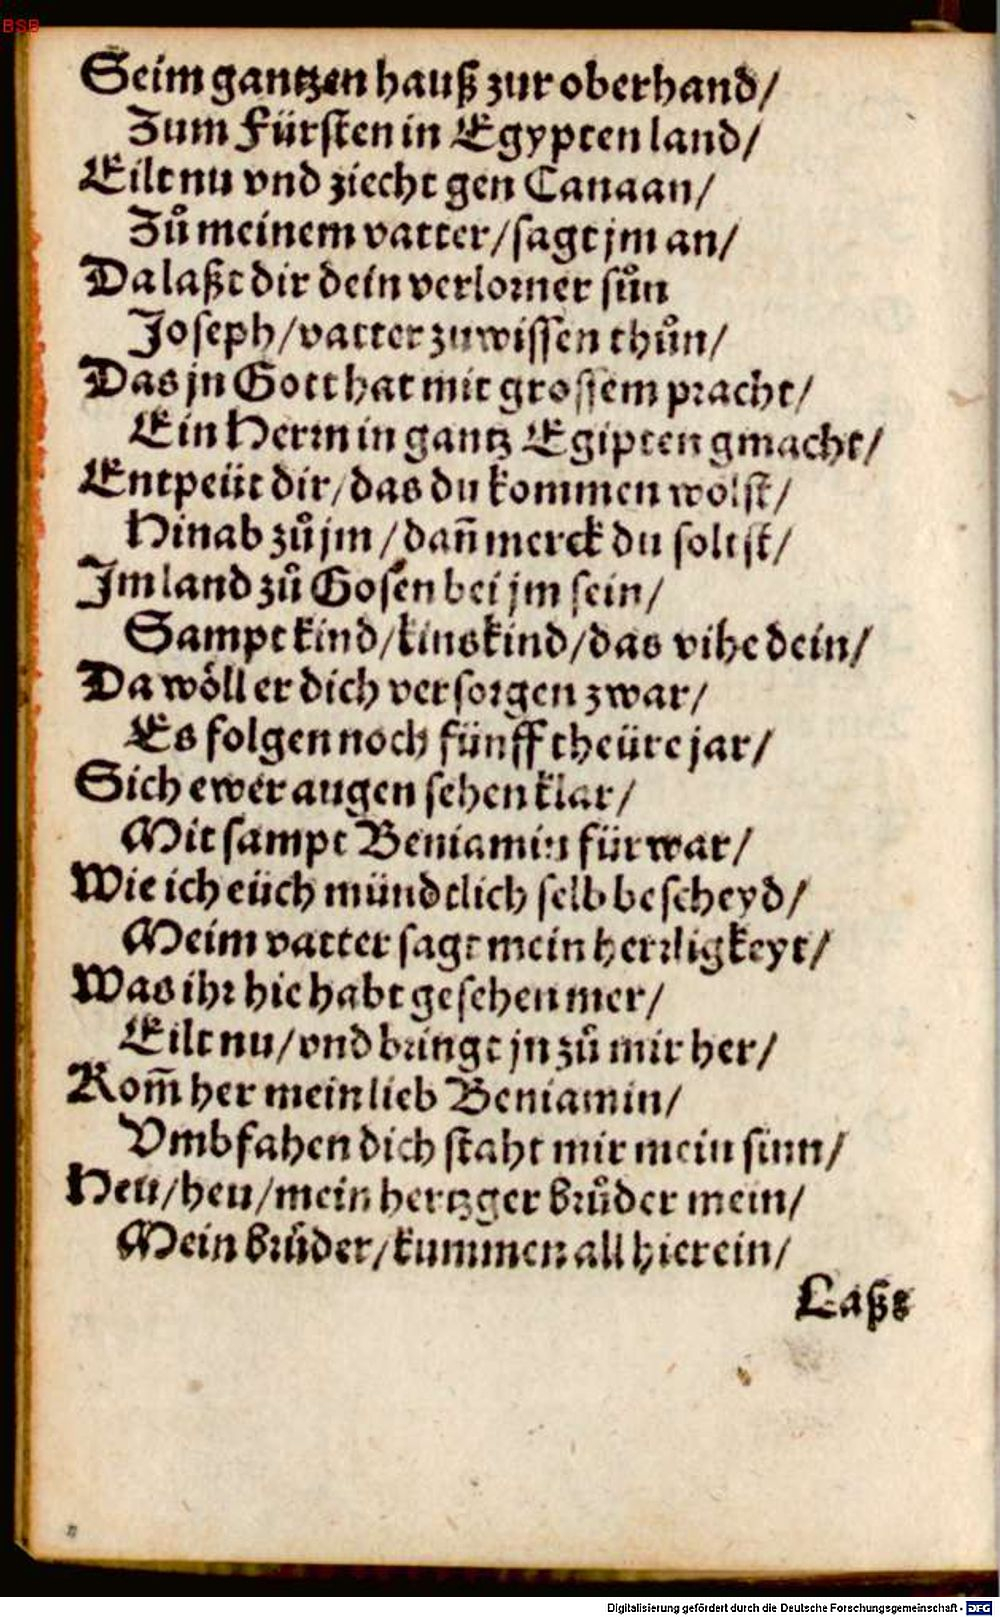 BSB
Seim gantzen hauß zur oberhand/
Zum Fürsten in Egypten land/
Eilt nu vnd ziecht gen Canaan/
Zů meinem vatter/sagt jm an/
Da laßt dir dein verlorner sůn
Joseph/vatter zuwissen thůn/
Das jn Gott hat mit grossem pracht/
Ein Herrn in gantz Egipten gmacht/
Entpeüt dir/das du kommen wolst/
Hinab zů jm/dañ merck du soltst/
Im land zů Gosen bei jm sein/
Sampt kind/kinskind/das vihe dein/
Da wöll er dich versorgen zwar/
Es folgen noch fünff theüre jar/
Sich ewer augen sehen klar/
Mit sampt Beniamin fürwar/
Wie ich eüch mündtlich selb bescheyd/
Meim vatter sagt mein herrligkeyt/
Was ihr hie habt gesehen mer/
Eilt nu/vnd bringt jn zů mir her/
Kom̃ her mein lieb Beniamin/
Vmbfahen dich staht mir mein sinn/
Heu/heu/mein hertzger brůder mein/
Mein brůder/kummen all hierein/
Laßs
Digitalisierung gefördert durch die Deutsche Forschungsgemeinschaft - DFG